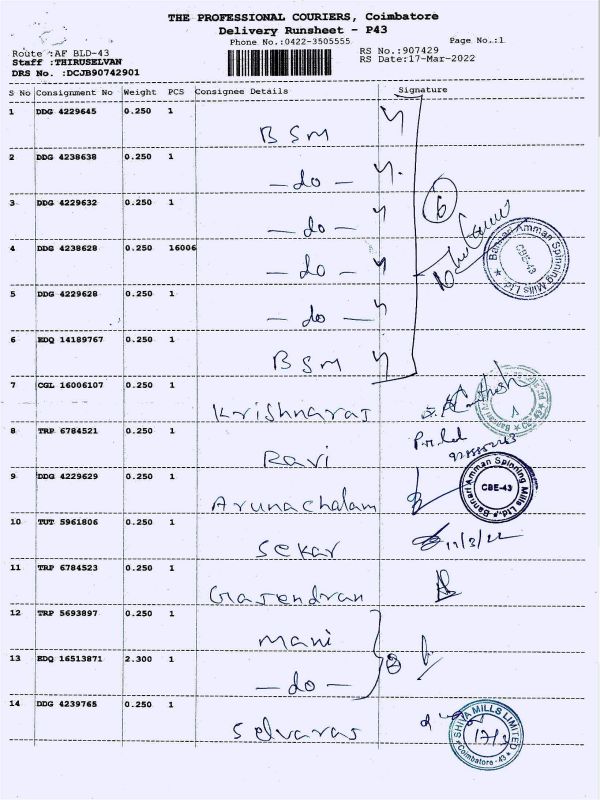 THE PROFESSIONAL COURIERS, Coimbatore
Delivery Runsheet - P43
Phone No.:0422-3505555 Page No.:1
Route :AF BLD-43 RS No.:907429
Staff :THIRUSELVAN RS Date:17-Mar-2022
DRS No. :DCJB90742901
S No Consignment No Weight PCS Consignee Details Signature
1 DDG 4229645 0.250 1
BSM
2 DDG 4238638 0.250 1
- do -
3 DDG 4229632 0.250 1
- do -
6
4 DDG 4238628 0.250 16006
- do -
Bannari Amman Spinning Mills Ltd.
CBE-43
5 DDG 4229628 0.250 1
- do -
6 EDQ 14189767 0.250 1
BSM
7 CGL 16006107 0.250 1
Krishnaraj
8 TRP 6784521 0.250 1
Ravi
9 DDG 4229629 0.250 1
Arunachalam
Bannari Amman Spinning Mills Ltd.
CBE-43
10 TUT 5961806 0.250 1
Sekar
17/3/22
11 TRP 6784523 0.250 1
Gajendran
12 TRP 5693897 0.250 1
Mani
13 EDQ 16513871 2.300 1
- do -
2
14 DDG 4239765 0.250 1
Selvaraj
SHIVA MILLS LIMITED
17/3
Coimbatore - 43